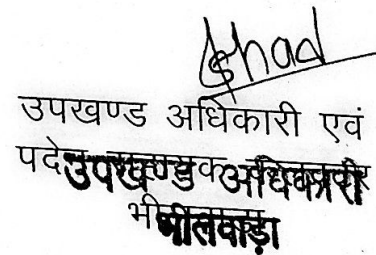 उपखण्ड अधिकारी एवं
पदेन
उपखण्ड अधिकारी
भीलवाड़ा